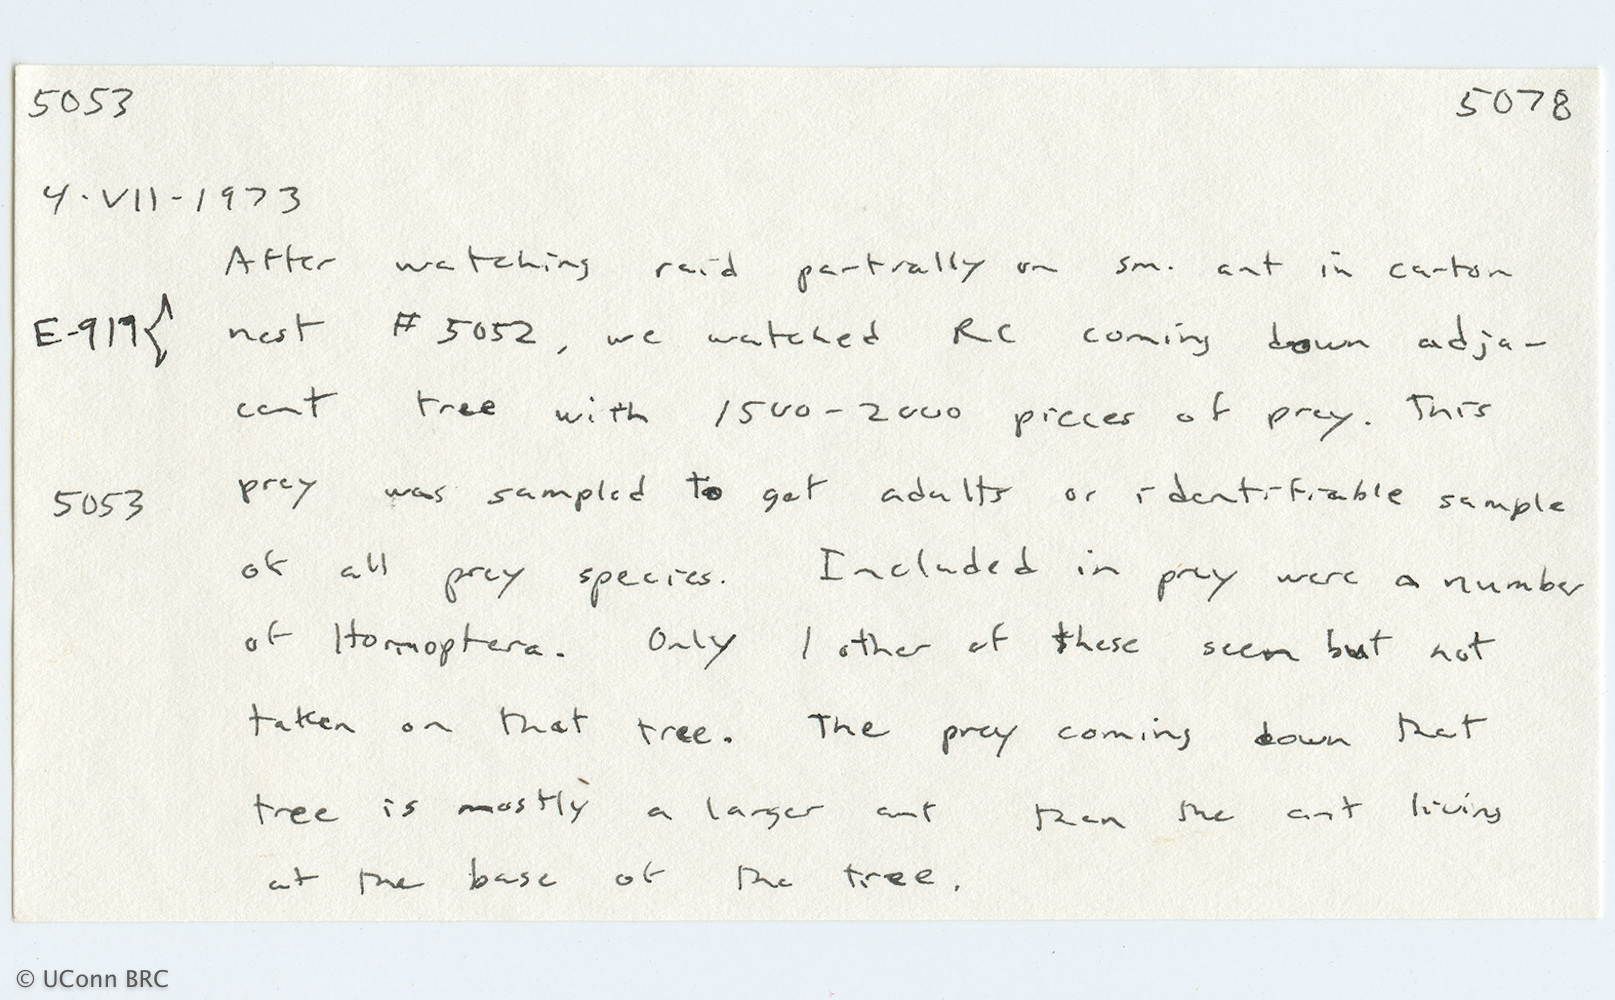 5053 5078
4·VII-1973
After watching raid partrally on sm. ant in carton
E-919{ nest # 5052, we watched RC coming down adja-
cent tree with 1500-2000 pieces of prey. This
5053 prey was sampled to get adults or identifiable sample
of all prey species. Included in prey were a number
of Homoptera. Only 1 other of these seen but not
taken on that tree. The prey coming down that
tree is mostly a larger ant than the ant living
at the base of the tree.
© UConn BRC